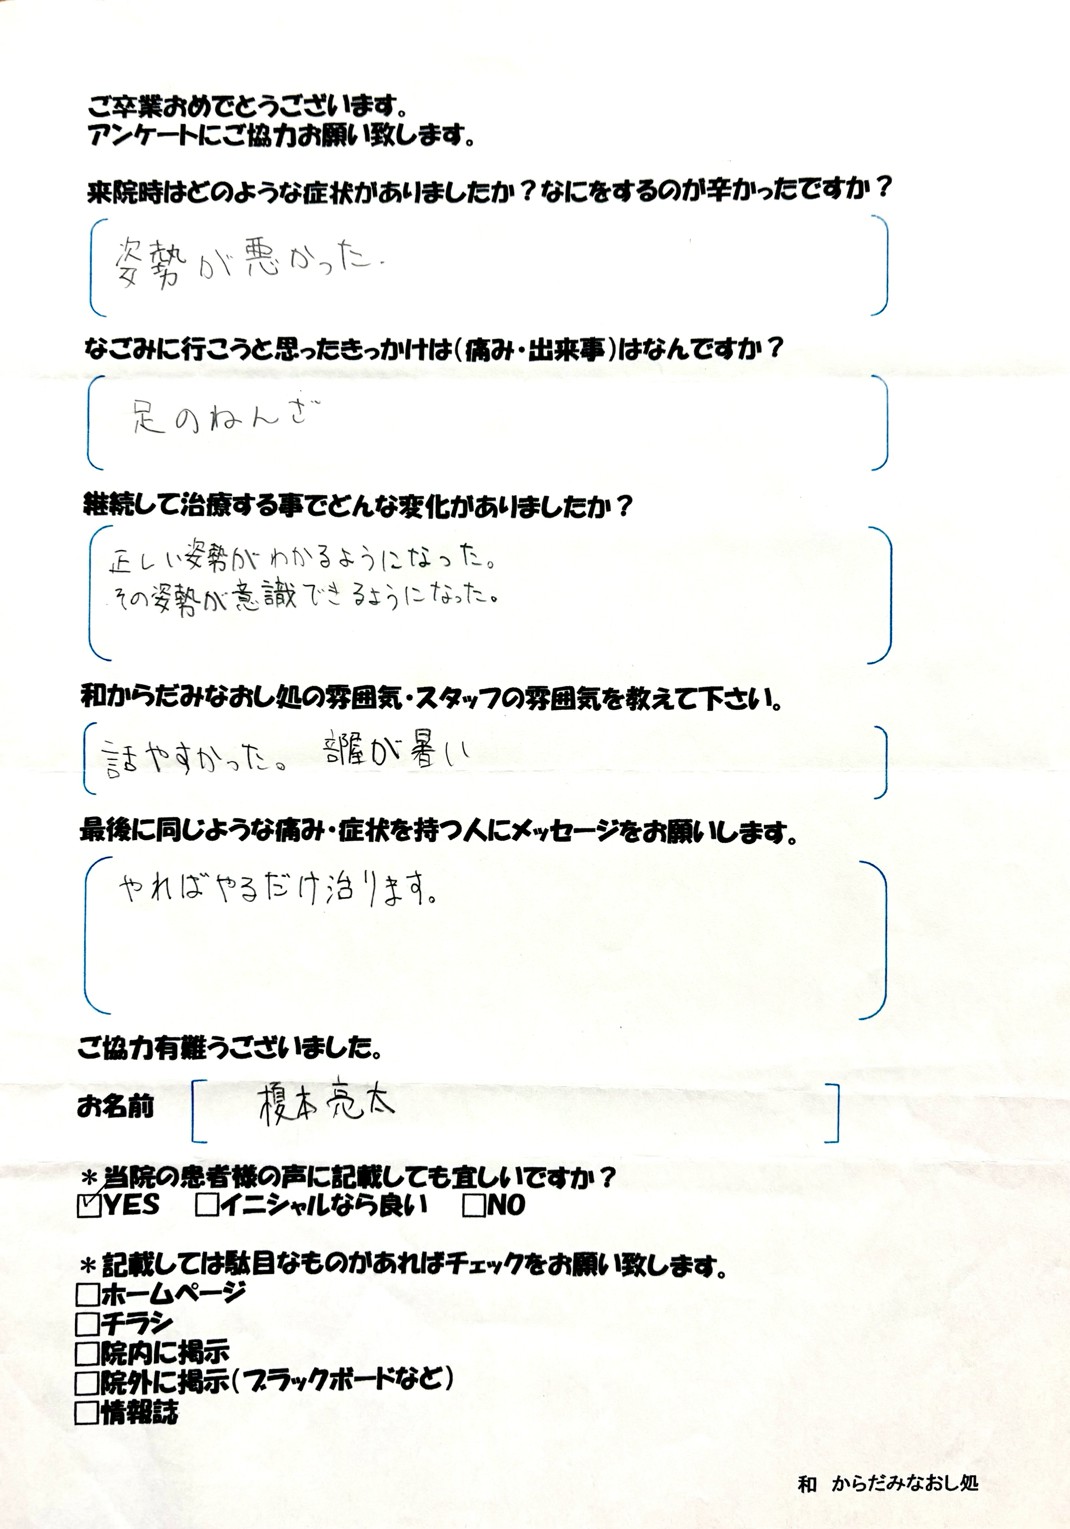 ご卒業おめでとうございます。
アンケートにご協力お願い致します。
来院時はどのような症状がありましたか？なにをするのが辛かったですか？
姿勢が悪かった.
なごみに行こうと思ったきっかけは(痛み・出来事)はなんですか？
足のねんざ
継続して治療する事でどんな変化がありましたか？
正しい姿勢がわかるようになった。
その姿勢が意識できるようになった。
和からだみなおし処の雰囲気・スタッフの雰囲気を教えて下さい。
話やすかった。 部屋が暑い
最後に同じような痛み・症状を持つ人にメッセージをお願いします。
やればやるだけ治ります。
ご協力有難うございました。
お名前 榎本亮太
＊当院の患者様の声に記載しても宜しいですか？
☑YES □イニシャルなら良い □NO
＊記載しては駄目なものがあればチェックをお願い致します。
□ホームページ
□チラシ
□院内に掲示
□院外に掲示(ブラックボードなど)
□情報誌
和 からだみなおし処